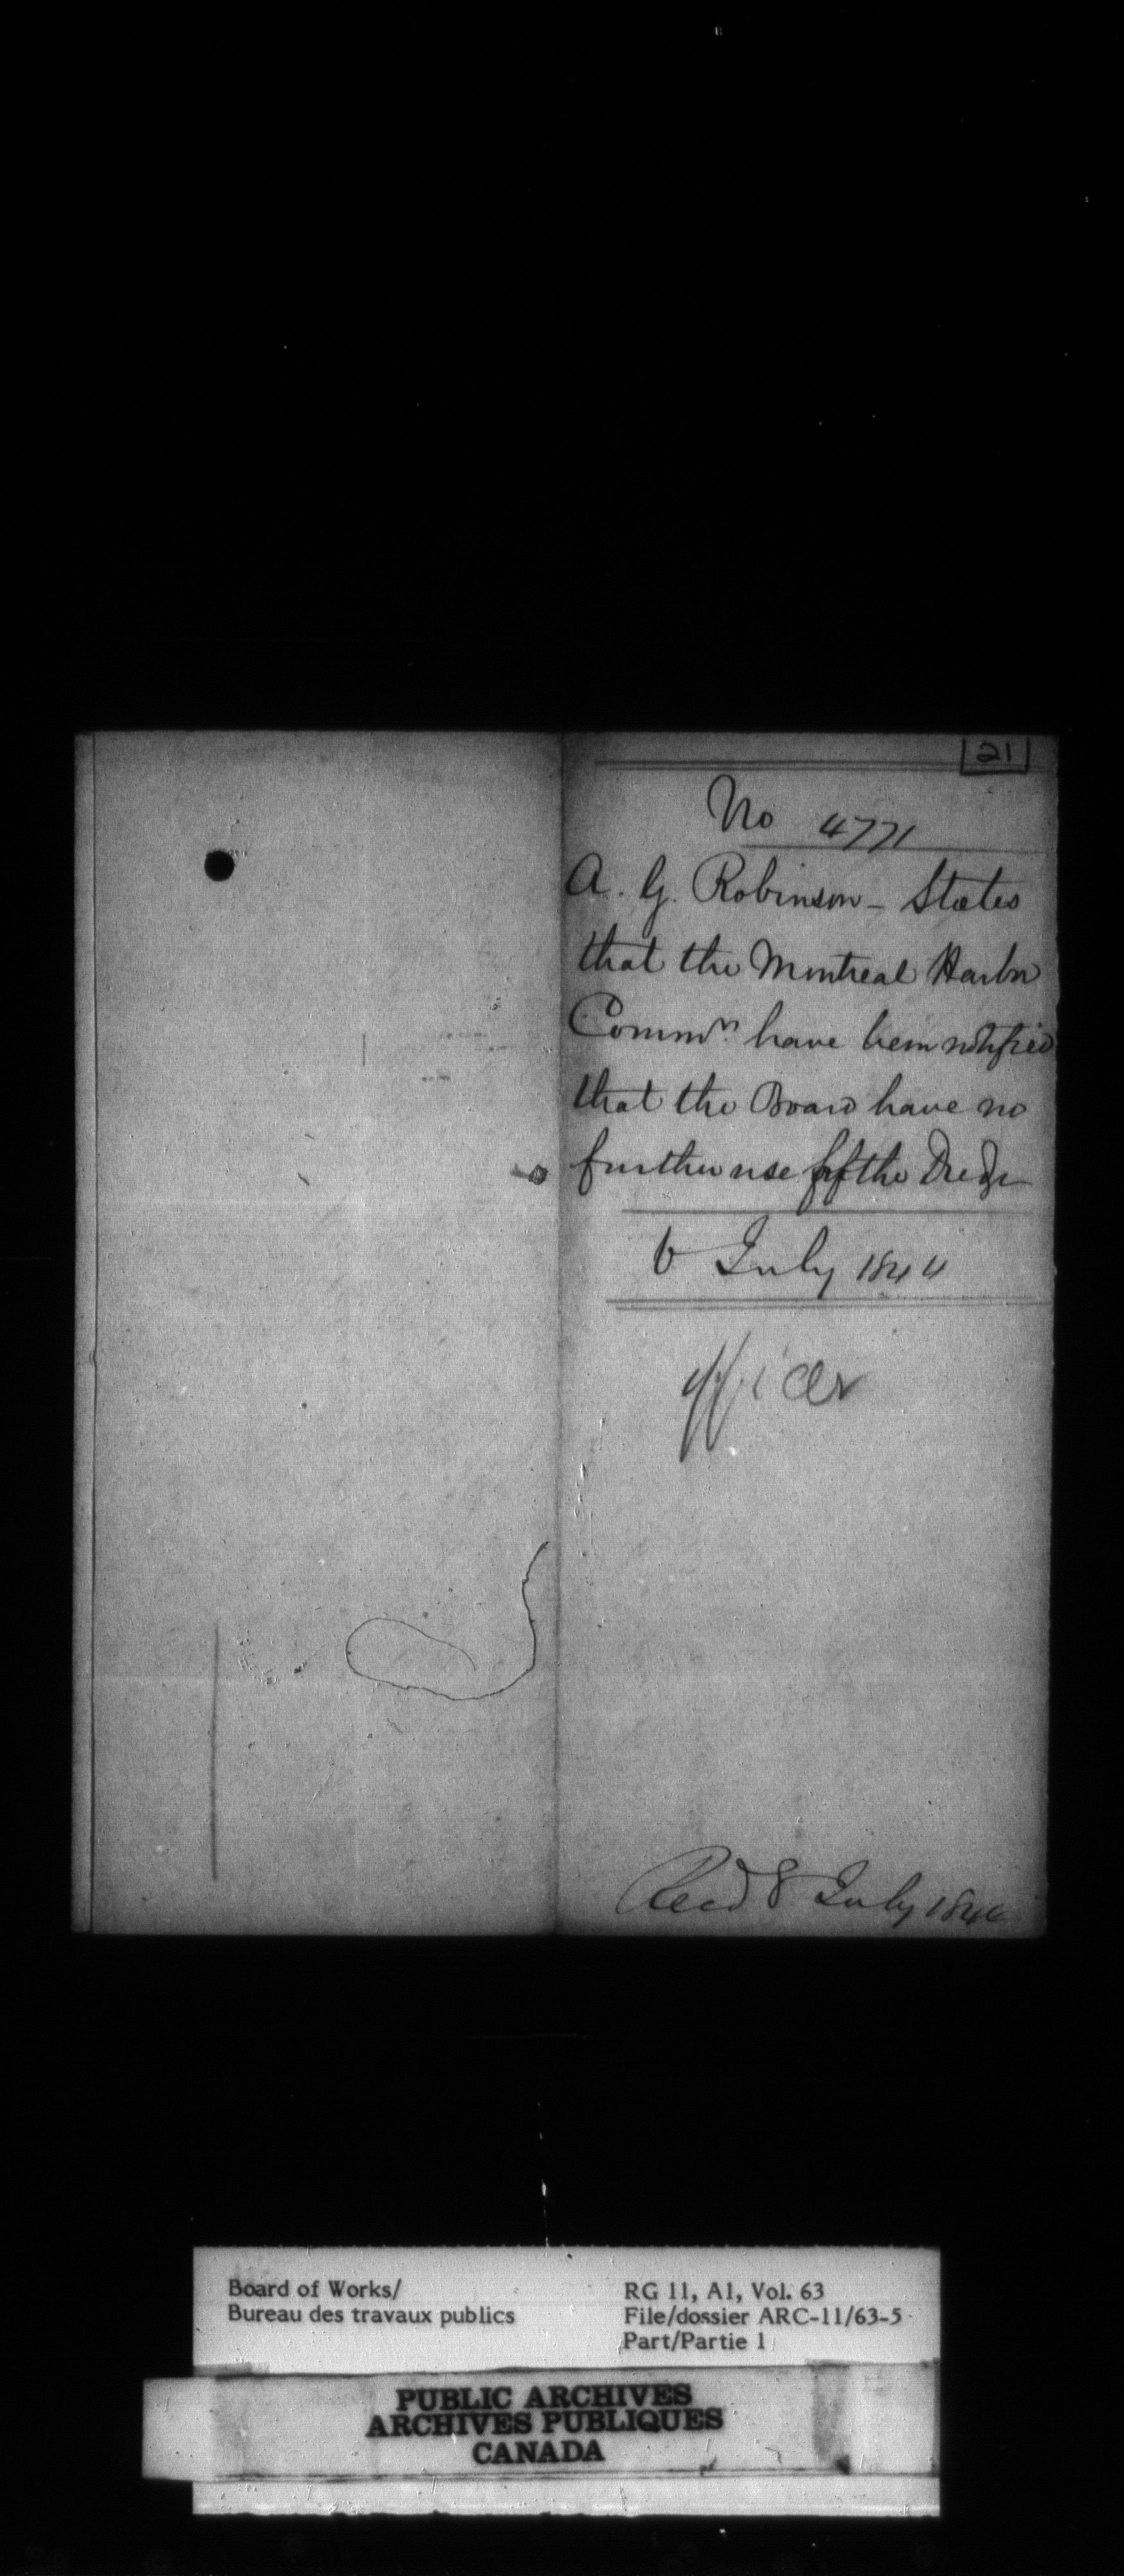 21
No 4771
A. G. Robinson - States
that the Montreal Harbr
Commrs have been notified
that the Board have no
further use of the Dredge
6 July 1844
Recd 8 July 1844
Board of Works/
Bureau des travaux publics
RG 11, A1, Vol. 63
File/dossier ARC-11/63-5
Part/Partie 1
PUBLIC ARCHIVES
ARCHIVES PUBLIQUES
CANADA